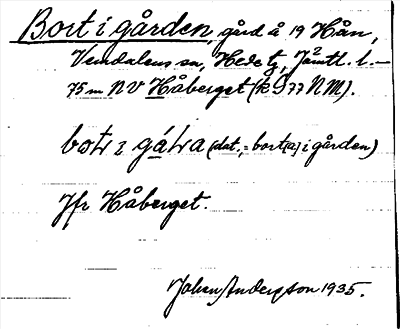 Bort i gården, gård å 19 Hån,
Vemdalens sn, Hede tg, Jämtl. l.—
75 m NV Håberget (k 977 NM).
(dat., = bort[a] i gården)
Jfr Håberget.
Johan Anderson 1935.